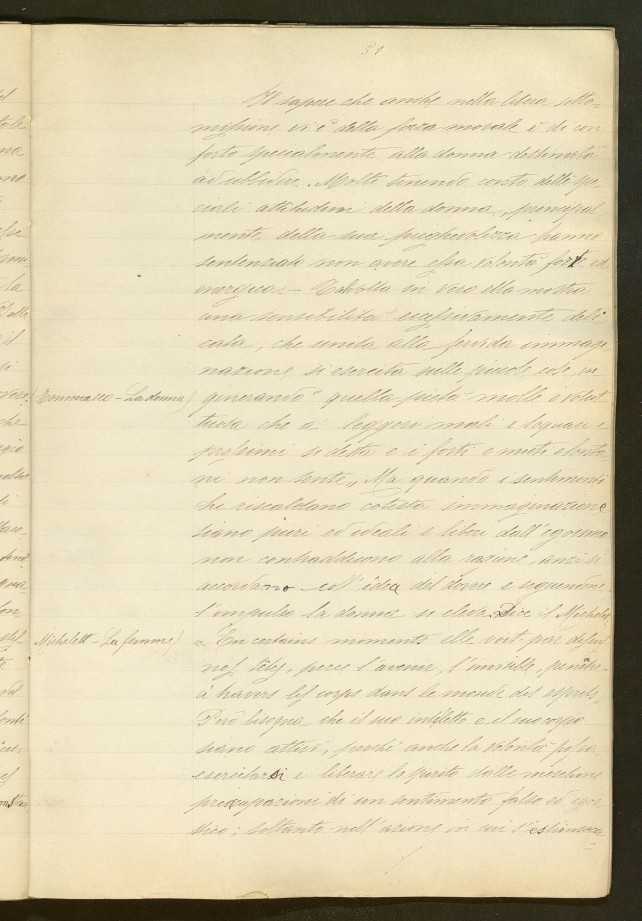 31
Il sapere che anche nella libera sotto=
missione vi è della forza morale è di con
forto specialmente alla donna destinata
ad ubbidire. Molti tenendo conto delle spe
ciali attitudini della donna, principal
mente della sua pieghevolezza hanno
sentenziato non avere essa volontà forte ed
energica. – Talvolta in vero ella mostra
una sensibilità eccessivamente deli
cata, che unita alla fervida immagi
nazione si esercita sulle piccole cose, in
(Tommaseo – La donna) generando "quella pietà molle e volut
tuosa che a leggeri mali e loquaci e
prossimi si desta e i forti e muti e lonta
ni non sente„ Ma quando i sentimenti
che riscaldano cotesta immaginazione
siano puri ed ideali e liberi dall'egoismo
non contraddicono alla ragione, anzi si
accordano coll'idea del dovere e seguendone
l'impulso la donna si eleva. Dice il Michelet
Michelett – La femme) „ En certains moments elle voit par dessus
nos têtes, perce l'avenir, l'invisible, pénètre
à travers les corps dans le monde des esprits„
Però bisogna che il suo intelletto e il suo corpo
siano attivi, perchè anche la volontà possa
esercitarsi e liberare lo spirito dalle meschine
preoccupazioni di un sentimento falso ed ego
stico; soltanto nell'azione in cui s'estrinseca